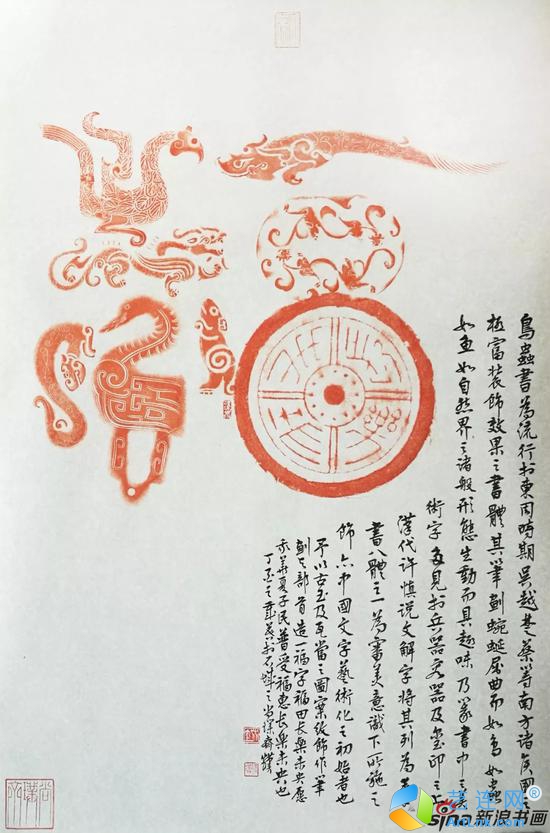 鳥蟲書為流行於東周時期吳越楚蔡等南方諸侯國
極富裝飾效果之書體其筆劃蜿蜒屈曲而如鳥如蟲
如魚如自然界之諸般形態生動而具趣味乃篆書中之美
術字多見於兵器容器及璽印之上
漢代許慎說文解字將其列為秦
書八體之一為審美意識下所施之
飾亦中國文字藝術化之初始者也
予以古玉及瓦當之圖案紋飾作筆
劃之部首造一福字福田長樂未央愿
我華夏子民普受福惠長樂未央也
丁酉之歲於石城之尚漢齋
艺连网
sina新浪书画